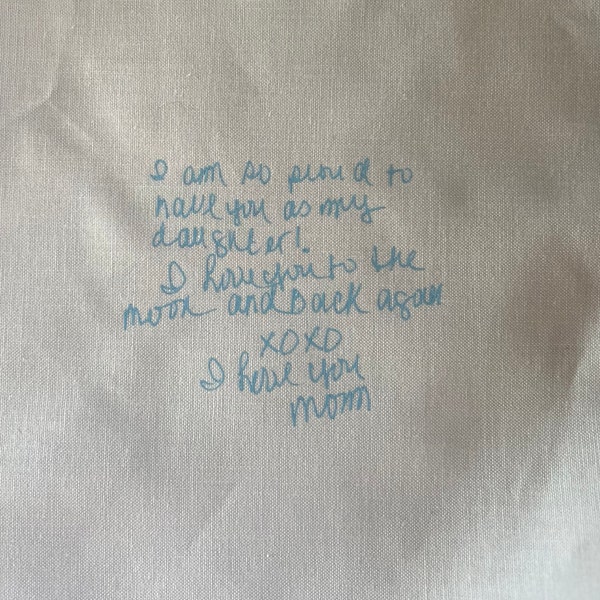 I am so proud to
have you as my
daughter!.
I love you to the
moon and back again
XOXO
I love you
mom